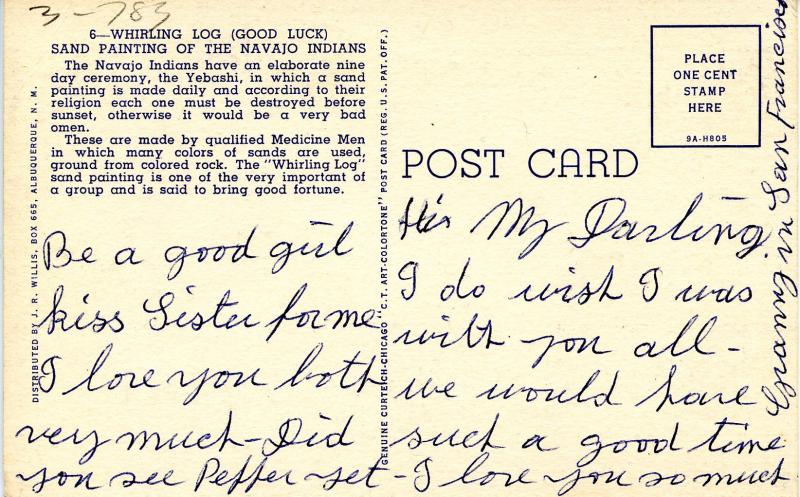 3-783
6—WHIRLING LOG (GOOD LUCK)
SAND PAINTING OF THE NAVAJO INDIANS
The Navajo Indians have an elaborate nine
day ceremony, the Yebashi, in which a sand
painting is made daily and according to their
religion each one must be destroyed before
sunset, otherwise it would be a very bad
omen.
These are made by qualified Medicine Men
in which many colors of sands are used,
ground from colored rock. The "Whirling Log"
sand painting is one of the very important of
a group and is said to bring good fortune.
DISTRIBUTED BY J. R. WILLIS, BOX 665, ALBUQUERQUE, N. M.
GENUINE CURTEICH-CHICAGO "C.T. ART-COLORTONE" POST CARD (REG. U.S. PAT. OFF.)
PLACE
ONE CENT
STAMP
HERE
9A-H805
POST CARD
Hi My Darling
I do wish I was
with you all-
we would have
such a good time
-I love you so much
Be a good girl
kiss Sister for me
I love you both
very much-Did
you see Pepper yet
Granny in San Francisco